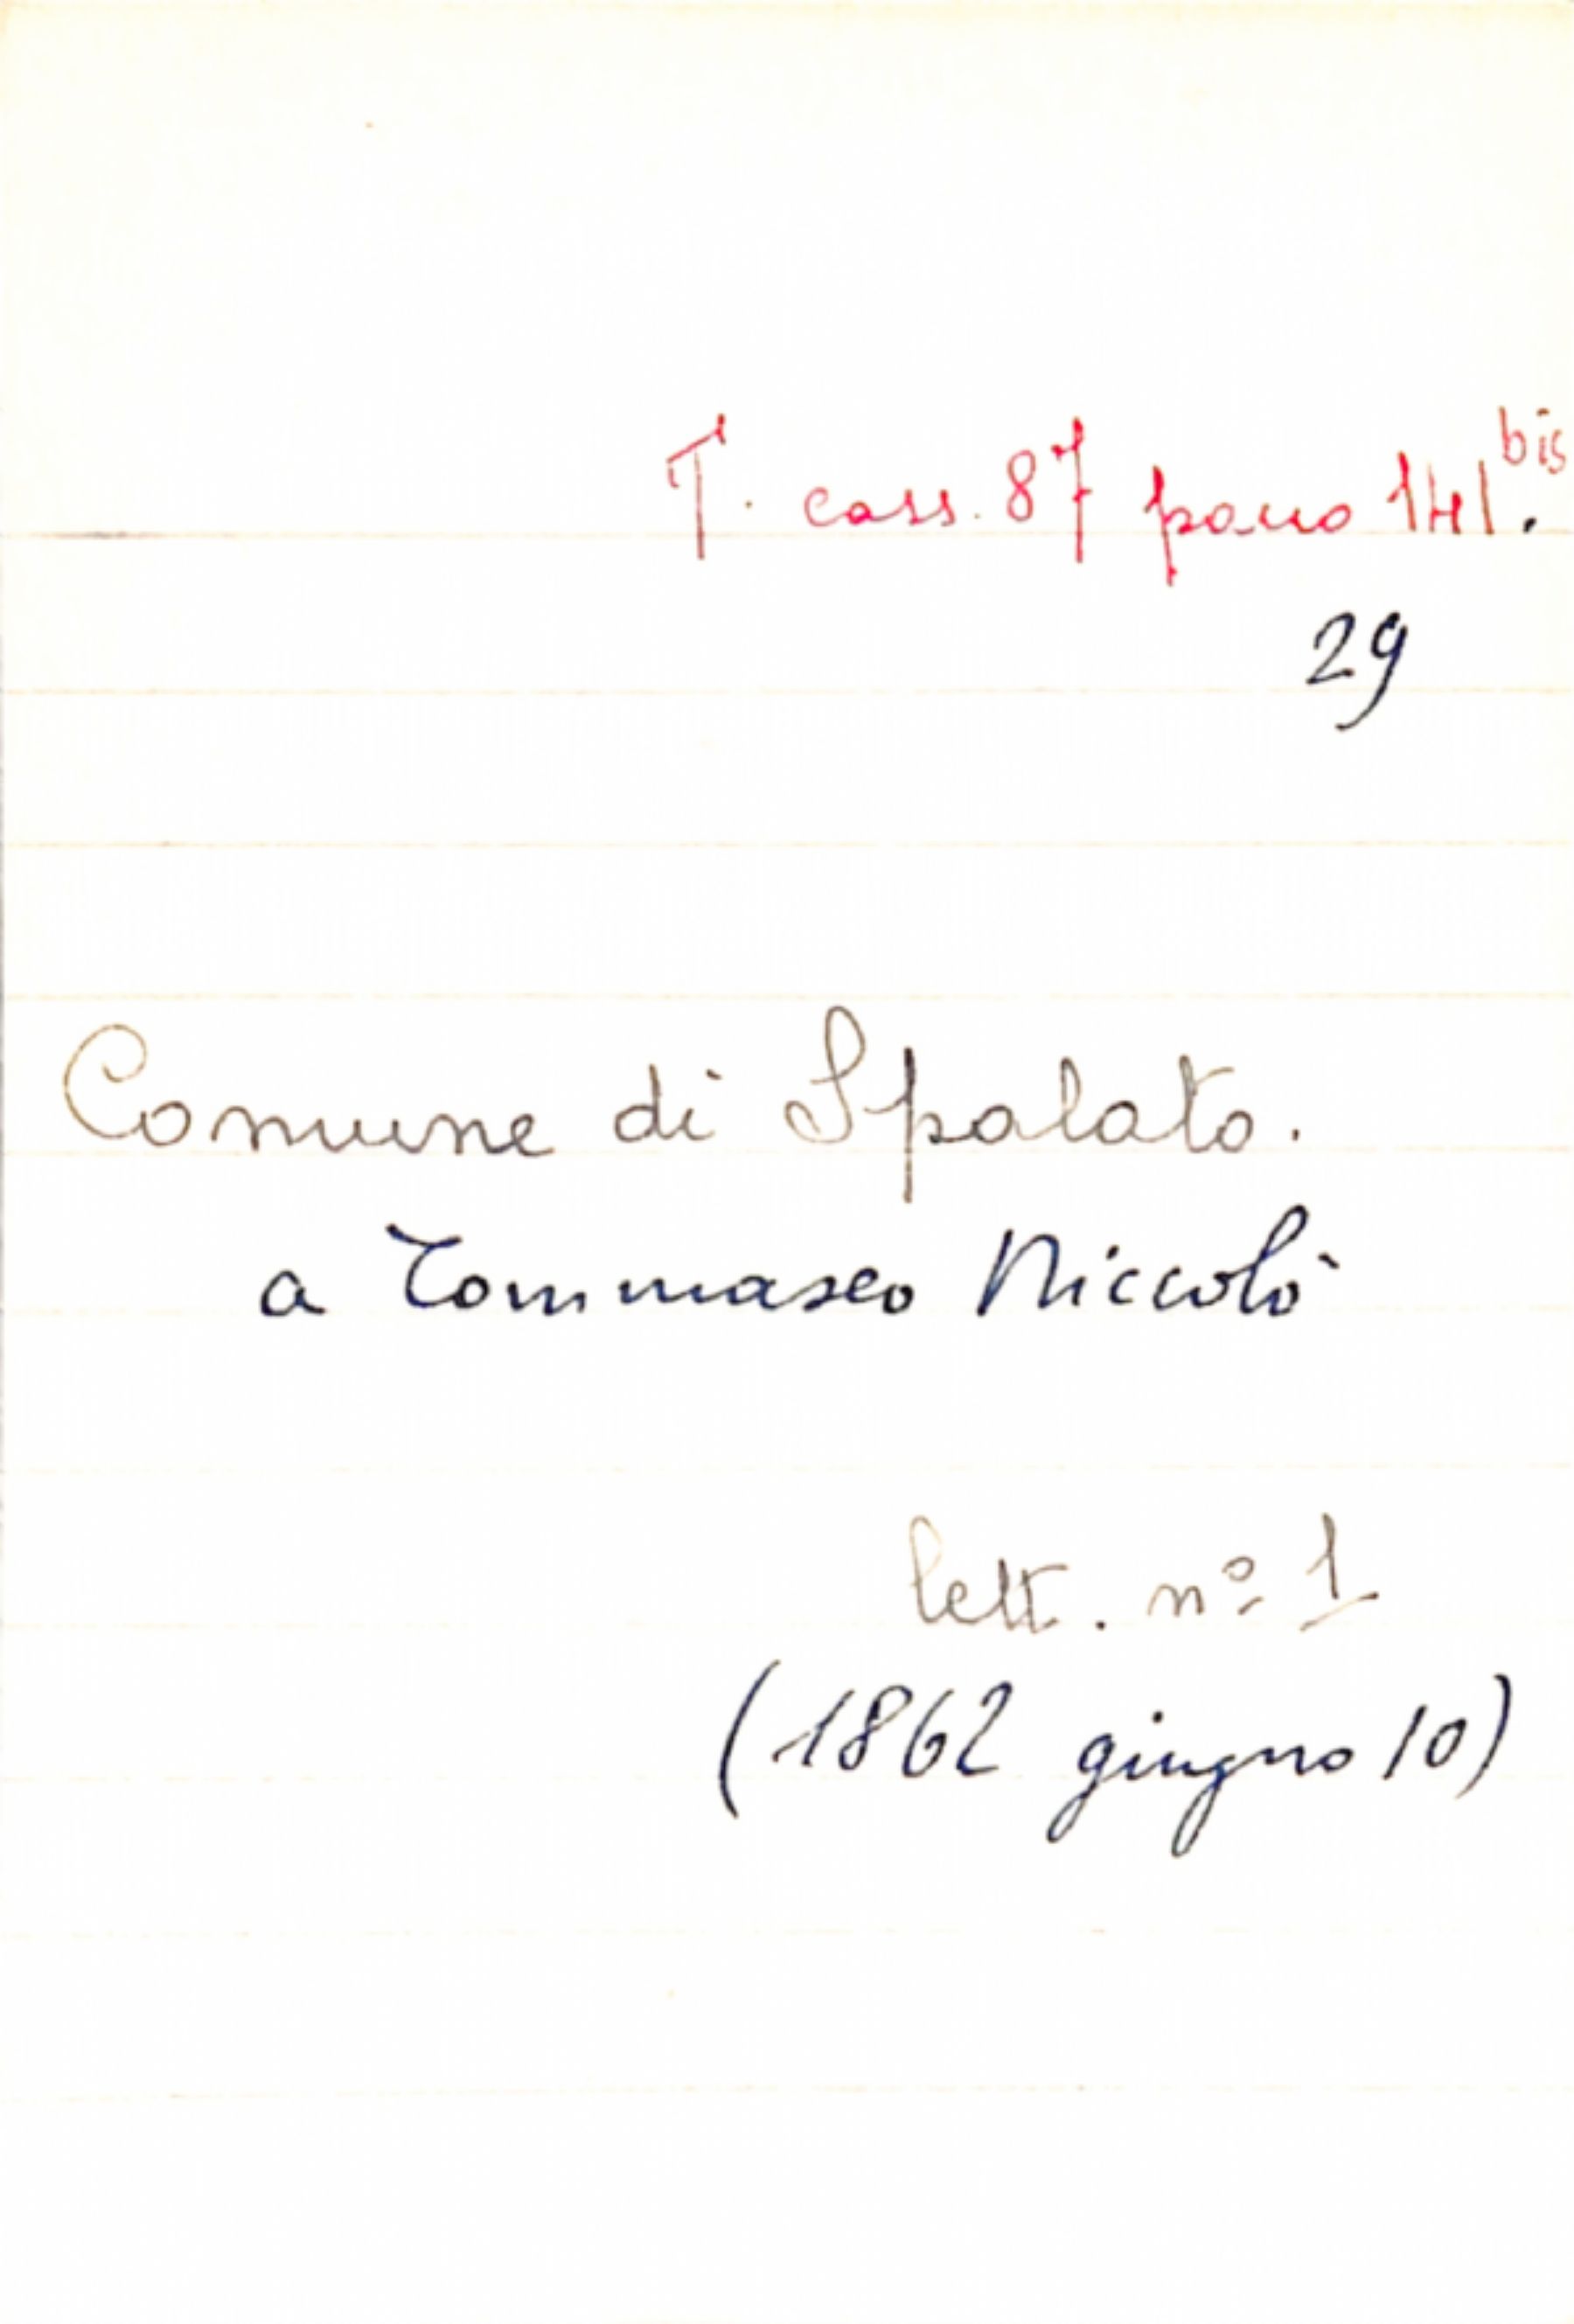 T. cass. 87 pacco 141.bis
29
Comune di Spalato.
a Tommaseo Niccolò
lett. nº 1
(1862 giugno 10)